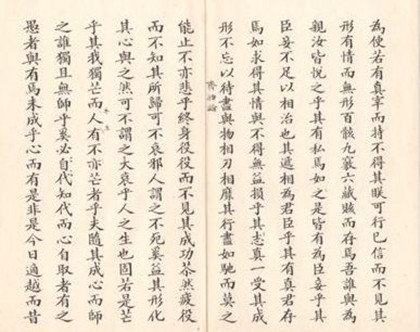 為使若有真宰而特不得其眹可行已信而不見其
形有情而無形百骸九竅六藏賅而存焉吾誰與為
親汝皆悅之乎其有私焉如之是皆有為臣妾乎其
臣妾不足以相治也其遞相為君臣乎其有真君存
焉如求得其情與不得無益損乎其真一受其成
形不忘以待盡與物相刃相靡其行盡如馳而莫之
齊物論
能止不亦悲乎終身役役而不見其成功苶然疲役
而不知其所歸可不哀邪人謂之不死奚益其形化
其心與之然可不謂之大哀乎人之生也固若是芒
乎其我獨芒而人有不亦芒者乎夫隨其成心而師
之誰獨且無師乎奚必自代知代而心自取者有之
愚者與有焉未成乎心而有是非是今日適越而昔